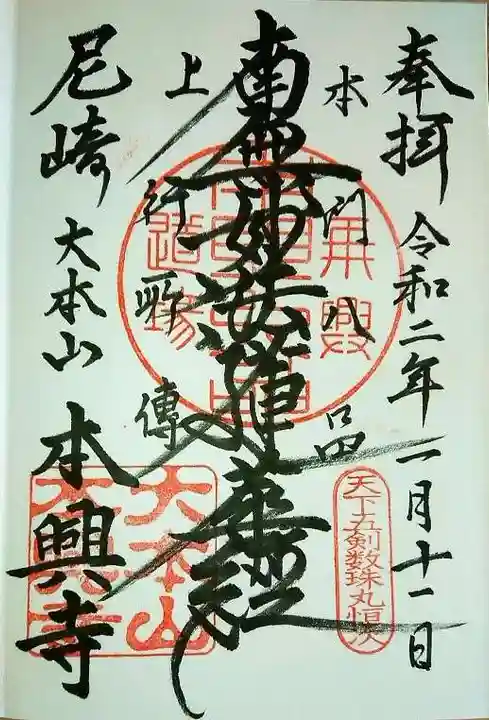 奉拝 令和二年一月十一日
本門八品
南無妙法蓮華経
上行所傳
尼崎 大本山 本興寺
天下五剣数珠丸恒次
大本山